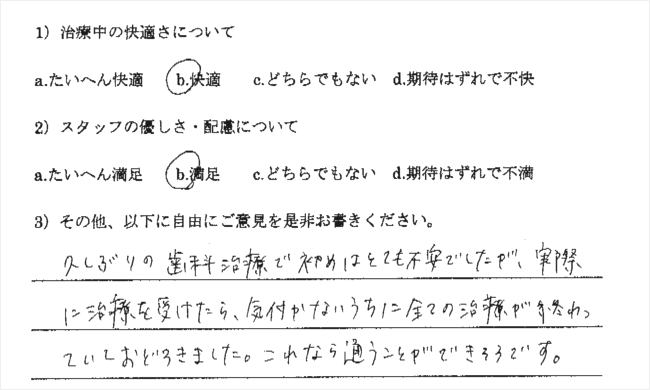 1）治療中の快適さについて
a.たいへん快適　b.快適　c.どちらでもない　d.期待はずれで不快
2）スタッフの優しさ・配慮について
a.たいへん満足　b.満足　c.どちらでもない　d.期待はずれで不満
3）その他、以下に自由にご意見を是非お書きください。
久しぶりの歯科治療で初めはとても不安でしたが、実際
に治療を受けたら、気付かないうちに全ての治療が終わっ
ていしおどろきました。これなら通うことができそうです。